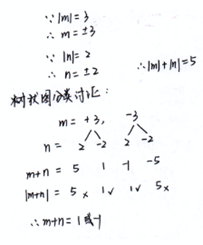 ∵ |m| = 3
∴ m = ±3
∵ |n| = 2
∴ n = ±2 ∴ |m|+|n|=5
树状图分类讨论:
m = +3, -3
n = 2 -2 2 -2
m+n = 5 1 -1 -5
|m+n| = 5 × 1√ 1√ 5×
∴ m+n = 1 或 -1